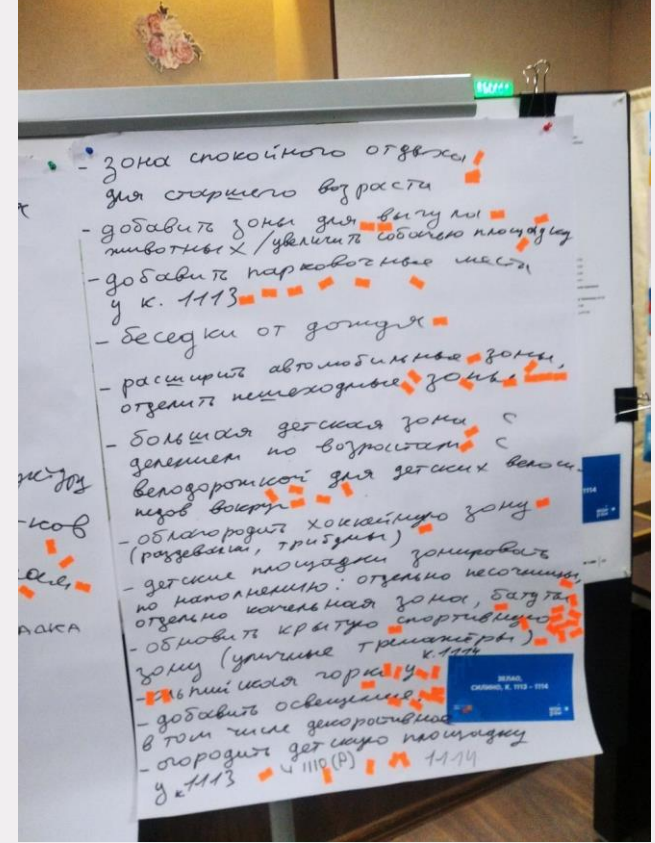 - зона спокойного отдыха
для старшего возраста
- добавить зоны для выгула
животных/увеличить собачью площадку
- добавить парковочные места
у к. 1113
- беседки от дождя
- расширить автомобильные зоны,
отделить пешеходные зоны
- большая детская зона с
делением по возрастам с
велодорожкой для детских велоси-
педов вокруг
- облагородить хоккейную зону
(раздевалки, трибуны)
- детские площадки зонировать
по наполнению: отдельно песочницы,
отдельно качельная зона, батуты
- обновить крытую спортивную
зону (уличные тренажёры)
к. 1114
горка у
- добавить освещение,
в том числе декоративное
- огородить детскую площадку
у к 1113 ч 1110(А) 1114
ЗЕЛАО,
СИЛИНО, К. 1113 - 1114
1114
ков
АДКА